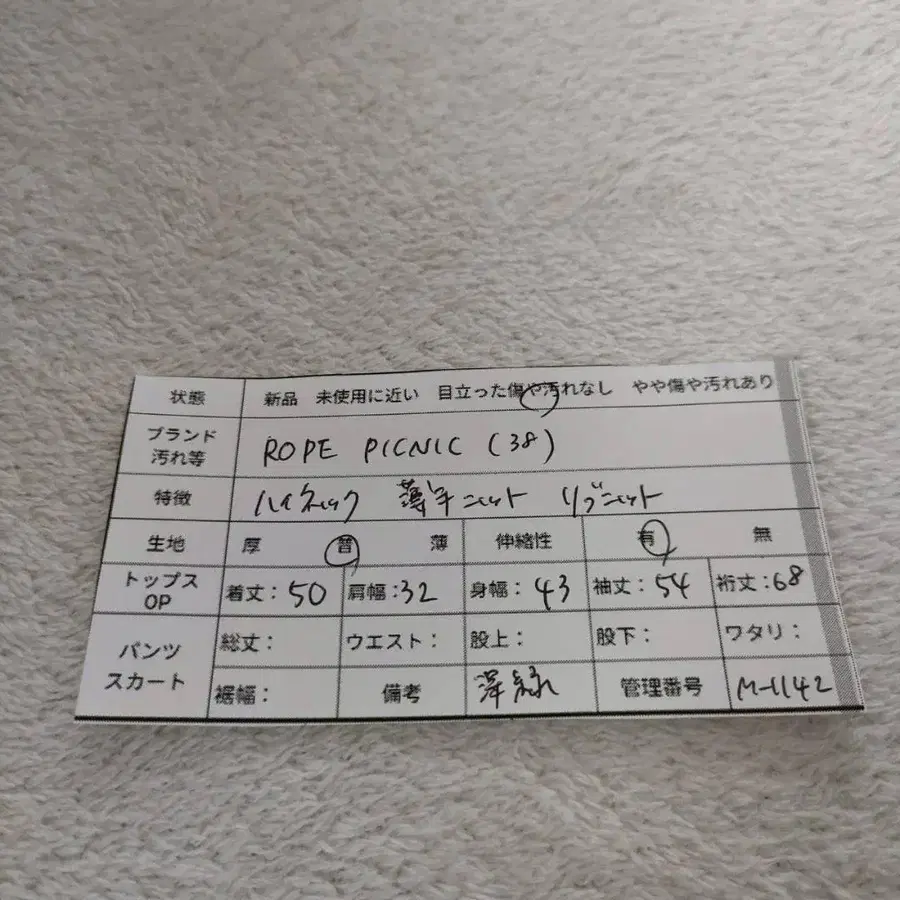 状態 新品 未使用に近い 目立った傷や汚れなし やや傷や汚れあり
ブランド
汚れ等 ROPE PICNIC (38)
特徴 ハイネック 薄手ニット リブニット
生地 厚 普 薄 伸縮性 有 無
トップス
OP 着丈:50 肩幅:32 身幅:43 袖丈:54 裄丈:68
パンツ
スカート 総丈: ウエスト: 股上: 股下: ワタリ:
裾幅: 備考 深緑 管理番号 M-1142